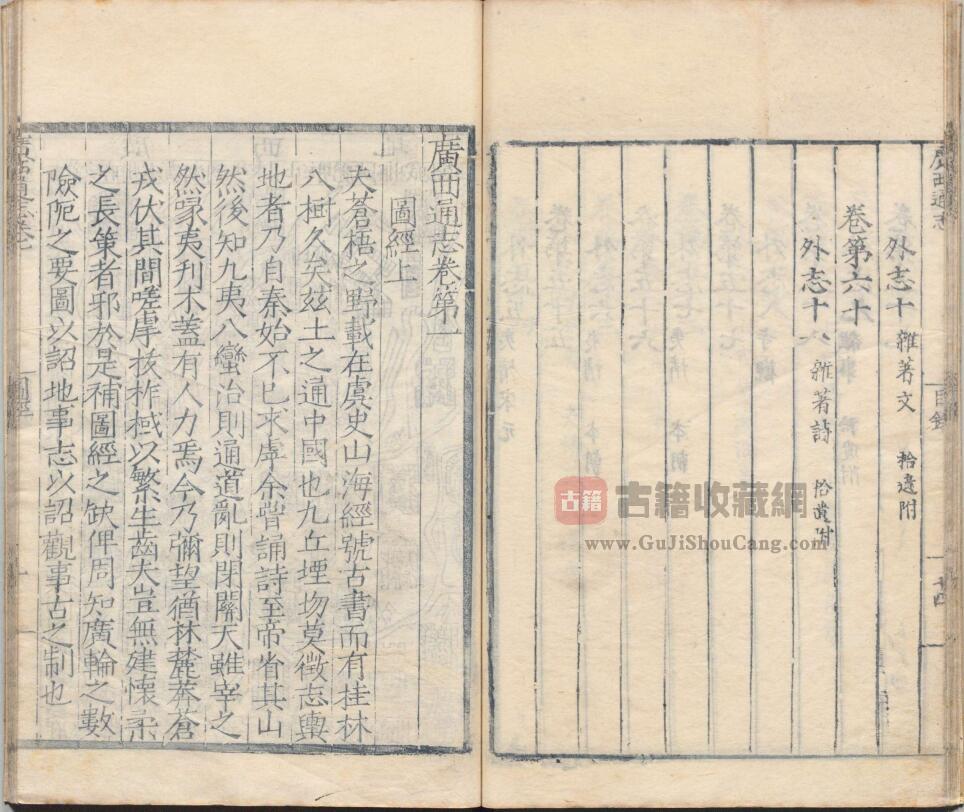 廣西通志
目錄
十四
外志十
雜著文 拾遺附
卷第六十
外志十八 雜著詩 拾遺附
廣西通志卷第一
圖經上
夫蒼梧之野載在虞史山海經號古書而有桂林
八樹久矣玆土之通中國也九丘堙莫徵志輿
地者乃自秦始不已來虖余嘗誦詩至帝省其山
然後知九夷八蠻治則通道亂則閉關天雖宰之
然喙夷刋木蓋有人力焉今乃彌望猶林麓莽蒼
戎伏其間嗟虖拔柞棫以繁生齒夫豈無建懷柔
之長策者邪於是補圖經之缺俾周知廣輪之數
險阨之要圖以詔地事志以詔觀事古之制也
圖經
古籍 古籍收藏網
www.GuJiShouCang.com